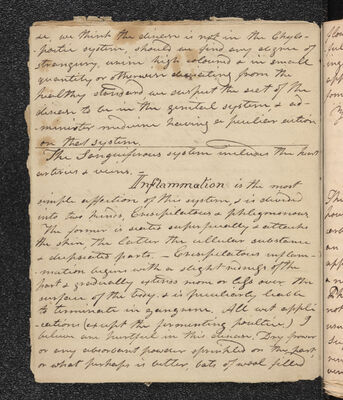 ee, we think the disease is not in the Chylo-
poetic system, should we find any degree of
strangury, urine high coloured & in small
quantity or otherwise deviating from the
healthy standard we suspect the seat of the
disease to be in the genital system, & ad-
minister medicine having a peculiar action
on that system.
The Sanguiferous system includes the heart
arteries & veins. —
Inflammation is the most
simple affection of this system, & is divided
into two kinds, Erisipelatous & phlegmonous
The former is seated superficially & attacks
the skin, the latter the cellular substance
& deepseated parts. — Erisipelatous inflam-
mation begins with a slight redness of the
part & gradually extends more or less over the
surface of the body, & is peculiarly liable
to terminate in gangrene. All wet appli-
cations (except the fermenting poultice) I
believe are hurtful in this disease. Dry flower
or any absorbant powder sprinkled on the part
or what perhaps is better, bats of wool filled